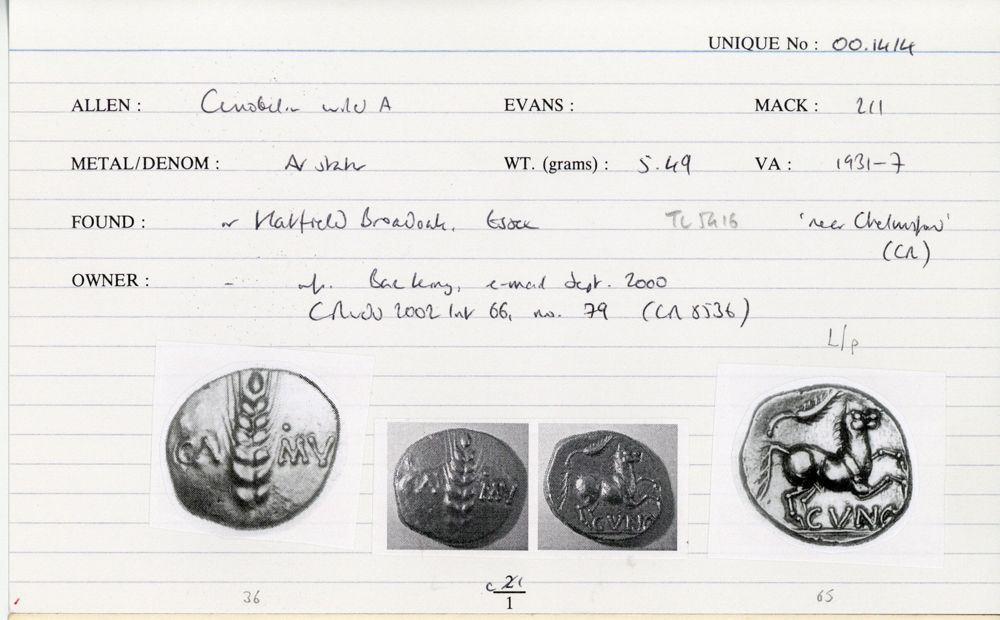 UNIQUE No : 00.1414
ALLEN : Cunobelin wild A EVANS : MACK : 211
METAL/DENOM : AV stater WT. (grams) : 5.49 VA : 1931-7
FOUND : nr Hatfield Broadoak, Essex TL 5416 'near Chelmsford'
(CR)
OWNER : - e-mail Sept. 2000
2002 66, no. 79 (CR 8536)
L/p
CA MV
CA MV
CVNO
CVNO
36 c 21 65
1